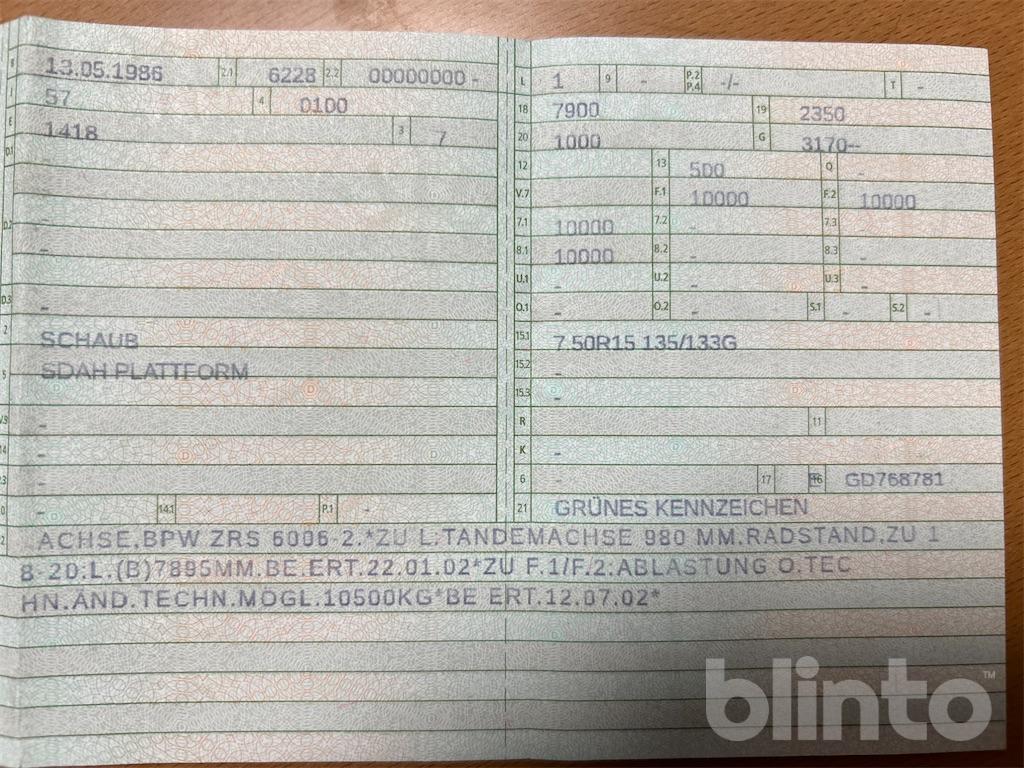 B 13.05.1986 2.1 6228 2.2 00000000 -
J 57 4 0100
E 1418 3 7
D.1
-
D.2 -
-
D.3 -
2 SCHAUB
5 SDAH PLATTFORM
V.9 -
14 -
P.3 -
10 - 14.1 P.1 -
L 1 9 - P.2 P.4 -/- T -
18 7900 19 2350
20 1000 G 3170--
12 - 13 500 Q -
V.7 F.1 10000 F.2 10000
7.1 10000 7.2 - 7.3
8.1 10000 8.2 - 8.3 -
U.1 - U.2 - U.3 -
O.1 - O.2 - S.1 - S.2 -
15.1 7.50R15 135/133G
15.2 -
15.3 -
R 11
K -
6 - 17 E 16 GD768781
21 GRÜNES KENNZEICHEN
22 ACHSE.BPW ZRS 6006-2.*ZU L:TANDEMACHSE 980 MM.RADSTAND.ZU 1
8-20:L.(B)7895MM.BE.ERT.22.01.02*ZU F.1/F.2:ABLASTUNG O.TEC
HN.ÄND.TECHN.MÖGL.10500KG*BE ERT.12.07.02*
blinto™